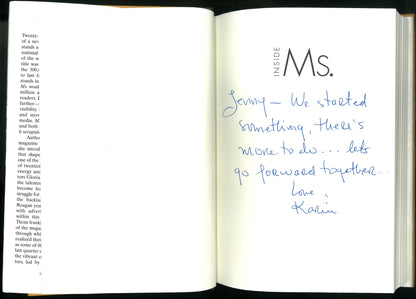 Twenty-
of a
stands a
national
of the w
title was
the 300,
to last
stands a
Ms. woul
million a
readers. I
further—
visibility
and mov
media. M
and both
it scrupul
Autho
magazine
she introd
that shape
one of the
of twentiet
energy and
tors Gloria
the talente
become bo
struggle fo
the backla
Reagan year
with advert
within this
Thom frankl
of the magaz
through whic
realized thei
as some of th
last quarter
the vibrant c
tors, led by
INSIDE
Ms.
Jenny – We started
something, there's
more to do... lets
go forward together...
Love,
Karin